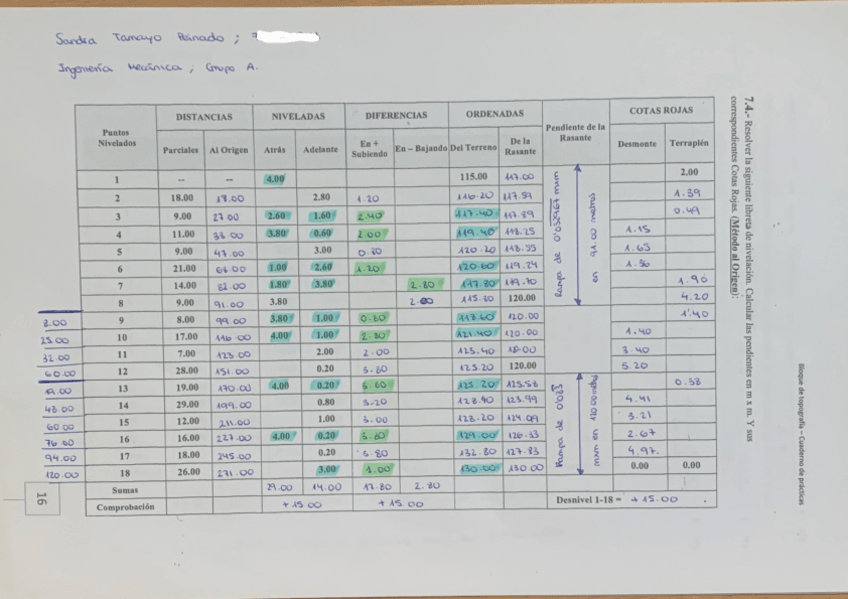 Sandra Tamayo Peinado ;
Ingeniería Mecánica ; Grupo A.
7.4.- Resolver la siguiente libreta de nivelación. Calcular las pendientes en m x m. Y sus
correspondientes Cotas Rojas. (Método al Origen):
Puntos Nivelados DISTANCIAS NIVELADAS DIFERENCIAS ORDENADAS Pendiente de la Rasante COTAS ROJAS
Parciales Al Origen Atrás Adelante En + Subiendo En – Bajando Del Terreno De la Rasante Desmonte Terraplén
1 -- -- 4.00 115.00 117.00 2.00
2 18.00 18.00 2.80 1.20 116.20 117.59 1.39
3 9.00 27.00 2.60 1.60 2.40 117.40 117.89 0.49
4 11.00 38.00 3.80 0.60 2.00 119.40 118.25 1.15
5 9.00 47.00 3.00 0.80 120.20 118.55 1.65
6 21.00 68.00 1.00 2.60 1.20 120.60 119.24 1.36
7 14.00 82.00 1.80 3.80 2.80 117.80 1.90
8 9.00 91.00 3.80 2.00 115.80 120.00 4.20
Rampa de 0'032967 mxm
en 91.00 metros
8.00 9 8.00 99.00 3.80 1.00 0.80 118.60 120.00 1.40
25.00 10 17.00 116.00 4.00 1.00 2.80 121.40 120.00 1.40
32.00 11 7.00 123.00 2.00 2.00 123.40 3.40
60.00 12 28.00 151.00 0.20 3.80 125.20 120.00 5.20
19.00 13 19.00 170.00 4.00 0.20 3.80 125.20 125.58 0.38
48.00 14 29.00 199.00 0.80 3.20 128.40 123.99 4.41
60.00 15 12.00 211.00 1.00 3.00 128.20 124.99 3.21
76.00 16 16.00 227.00 4.00 0.20 3.80 129.00 126.33 2.67
94.00 17 18.00 245.00 0.20 3.80 132.80 127.83 4.97
120.00 18 26.00 271.00 3.00 1.00 130.00 130.00 0.00 0.00
Rampa de 0'083
mxm en 120.00
Sumas 29.00 14.00 17.80 2.80
Comprobación + 15.00 + 15.00 Desnivel 1-18 = + 15.00
16
Bloque de topografía – Cuaderno de prácticas